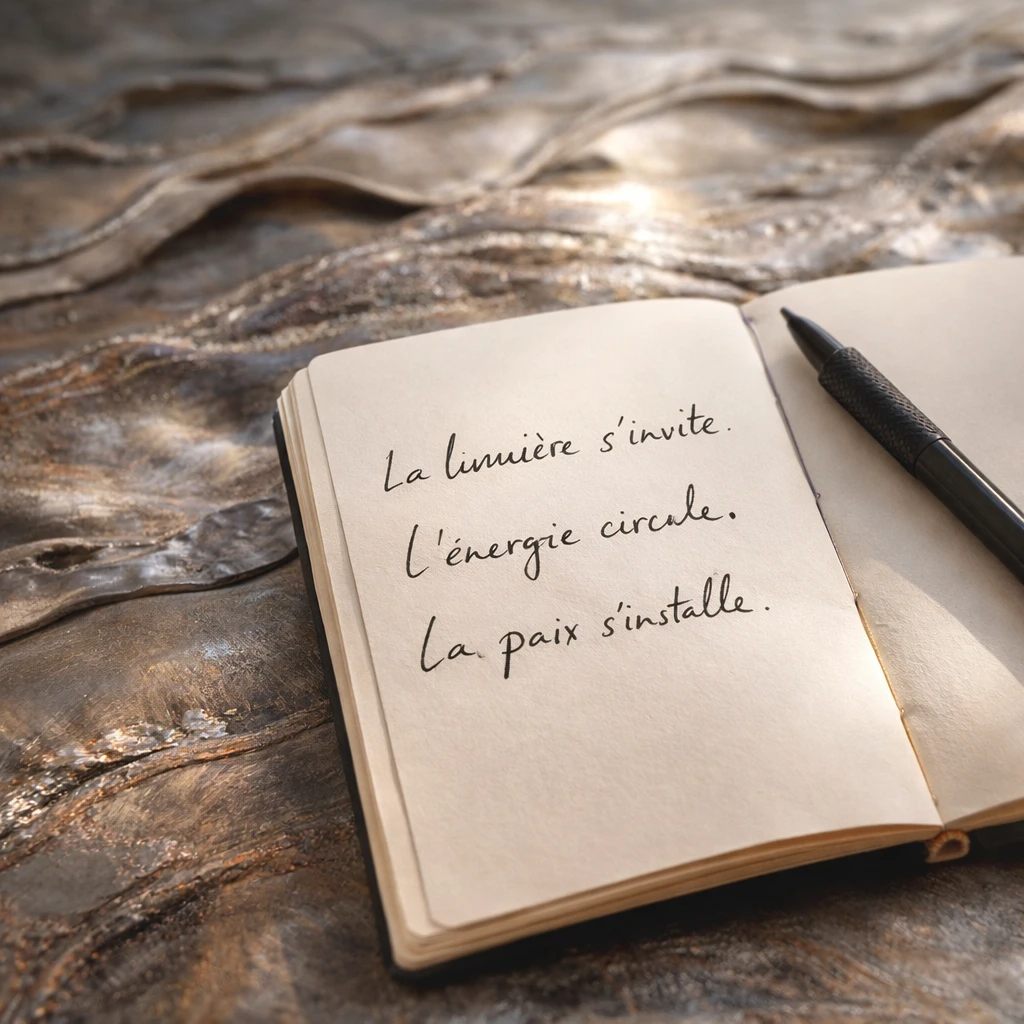 La lumière s'invite.
L'énergie circule.
La paix s'installe.